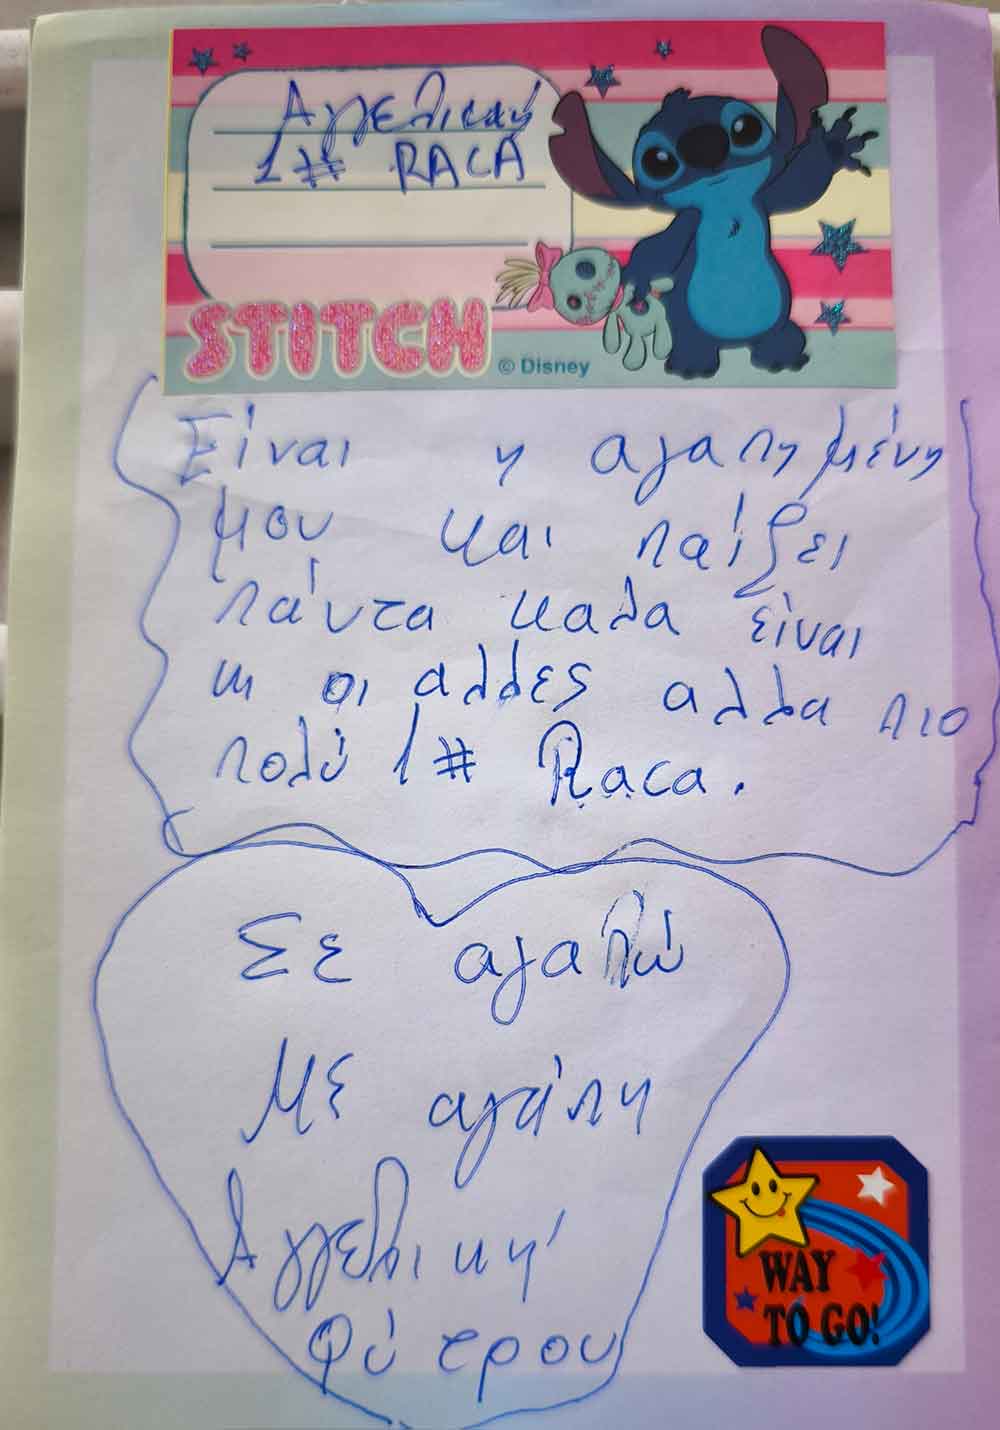 Αγγελική
1# RACA
STITCH
© Disney
Είναι η αγαπημένη
μου και παίζει
πάντα καλα είναι
κι οι αλλες αλλα πιο
πολύ 1# Raca.
Σε αγαπώ
Με αγάπη
Αγγελική
Φύτρου
WAY
TO GO!